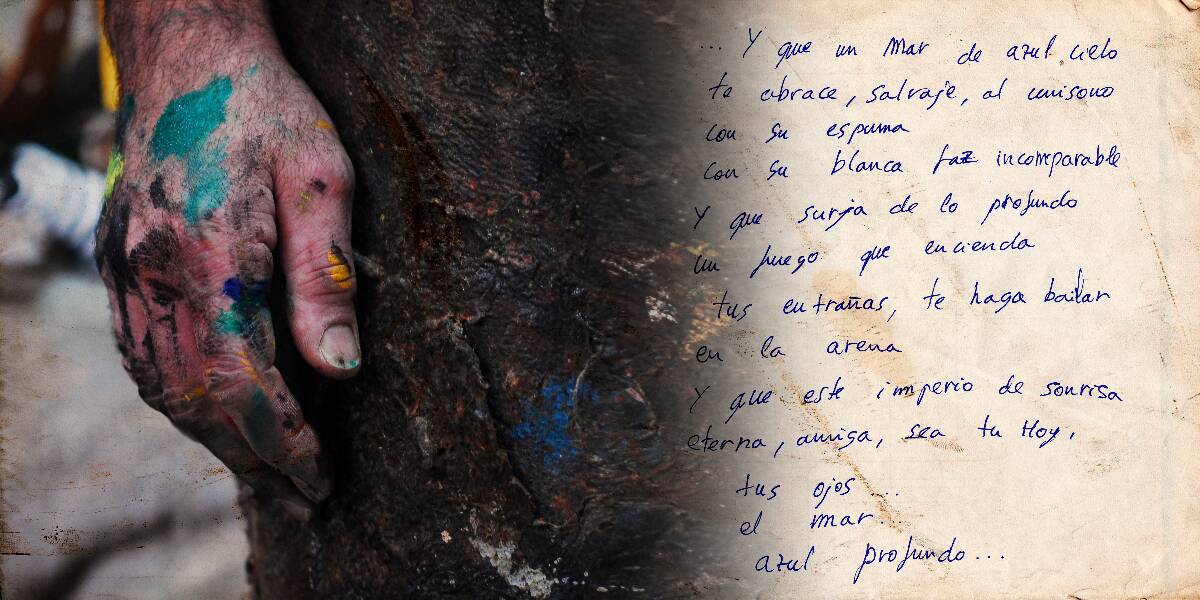 ... Y que un mar de azul cielo
te abrace, salvaje, al unisono
con su espuma
con su blanca faz incomparable
Y que surja de lo profundo
un fuego que encienda
tus entrañas, te haga bailar
en la arena
Y que este imperio de sonrisa
eterna, amiga, sea tu Hoy,
tus ojos ...
el mar
azul profundo...